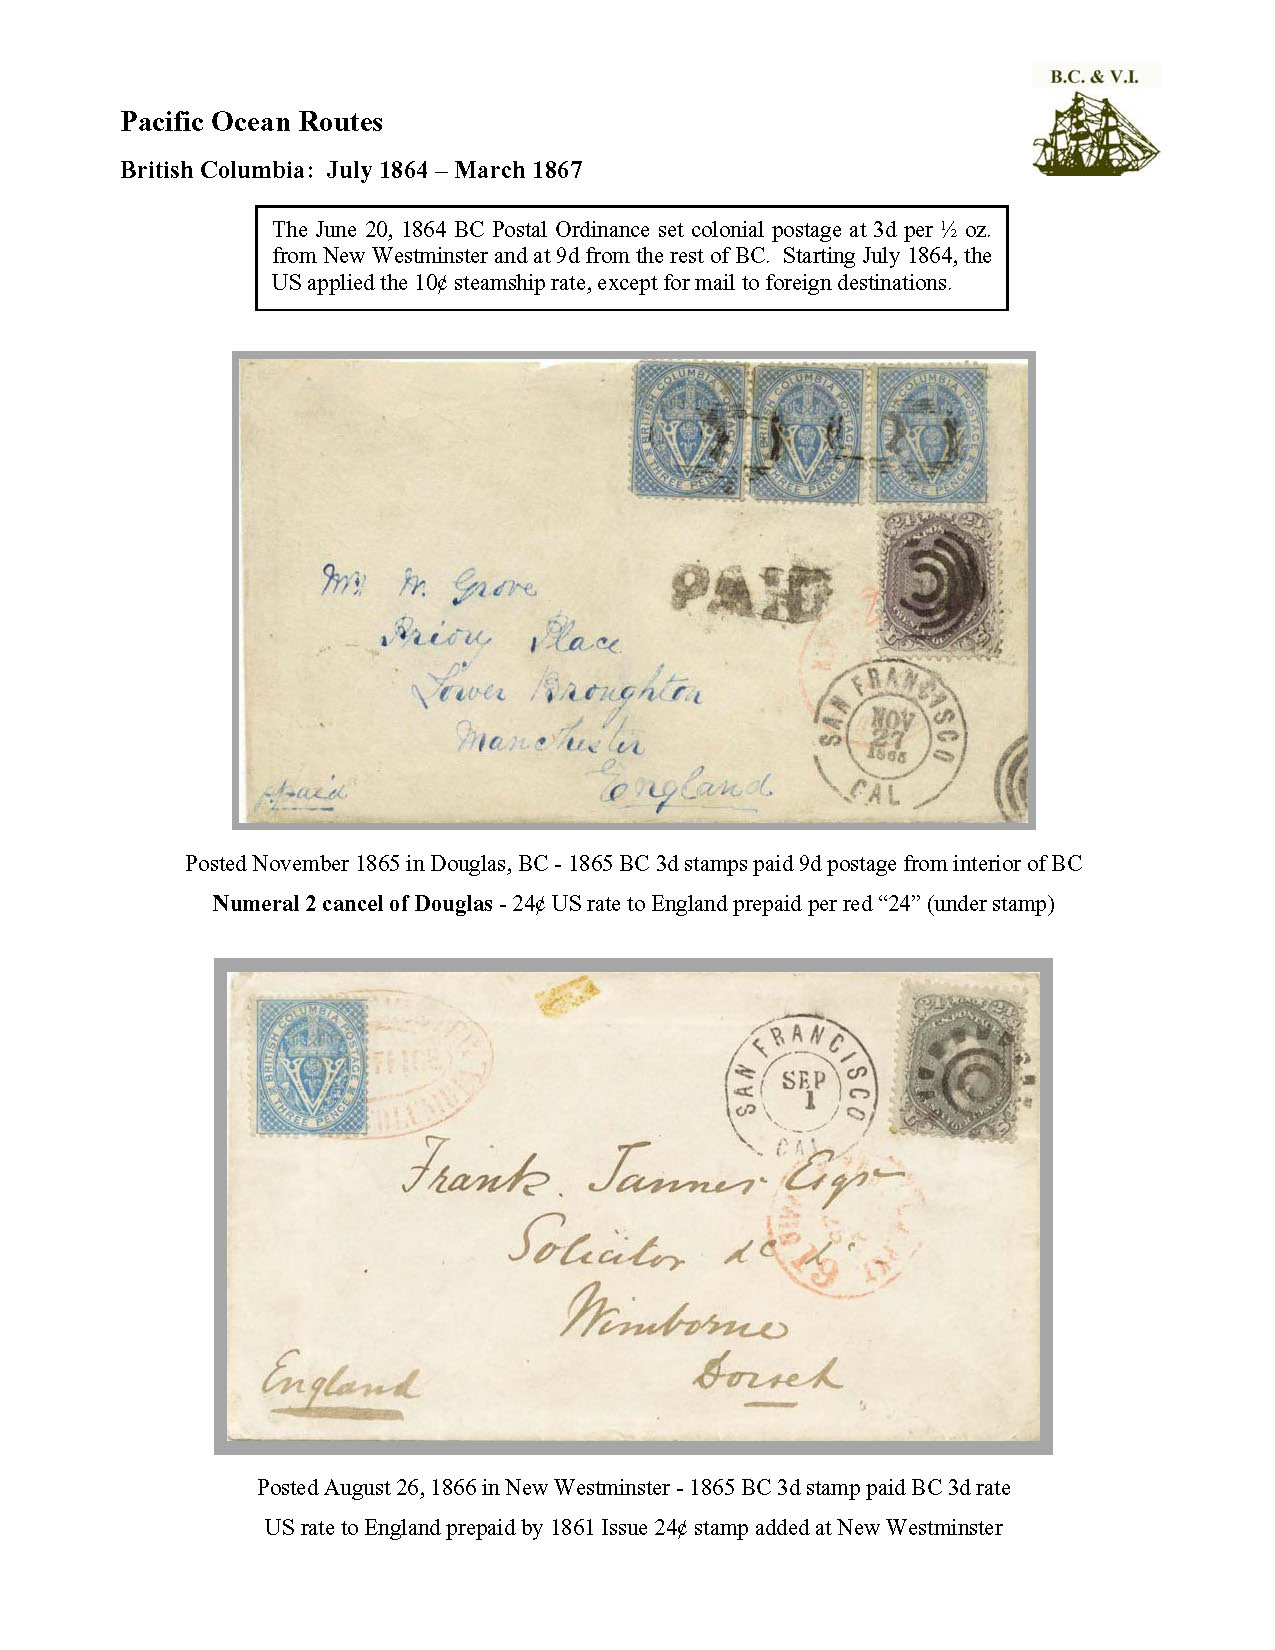 B.C. & V.I.
Pacific Ocean Routes
British Columbia: July 1864 – March 1867
The June 20, 1864 BC Postal Ordinance set colonial postage at 3d per ½ oz.
from New Westminster and at 9d from the rest of BC. Starting July 1864, the
US applied the 10¢ steamship rate, except for mail to foreign destinations.
BRITISH COLUMBIA POSTAGE
THREE PENCE
BRITISH COLUMBIA POSTAGE
THREE PENCE
COLUMBIA POSTAGE
THREE PENCE
24 24
PAID
Mr. M. Grove
Priory Place
Lower Broughton
Manchester
England
ppaid
SAN FRANCISCO
NOV
27
1865
CAL
Posted November 1865 in Douglas, BC - 1865 BC 3d stamps paid 9d postage from interior of BC
Numeral 2 cancel of Douglas - 24¢ US rate to England prepaid per red “24” (under stamp)
BRITISH COLUMBIA POSTAGE
THREE PENCE
SAN FRANCISCO
SEP
1
CAL
24 24
Frank. Tanner Esqr
Solicitor &c &c
Wimborne
Dorset
England
19
PKT
Posted August 26, 1866 in New Westminster - 1865 BC 3d stamp paid BC 3d rate
US rate to England prepaid by 1861 Issue 24¢ stamp added at New Westminster